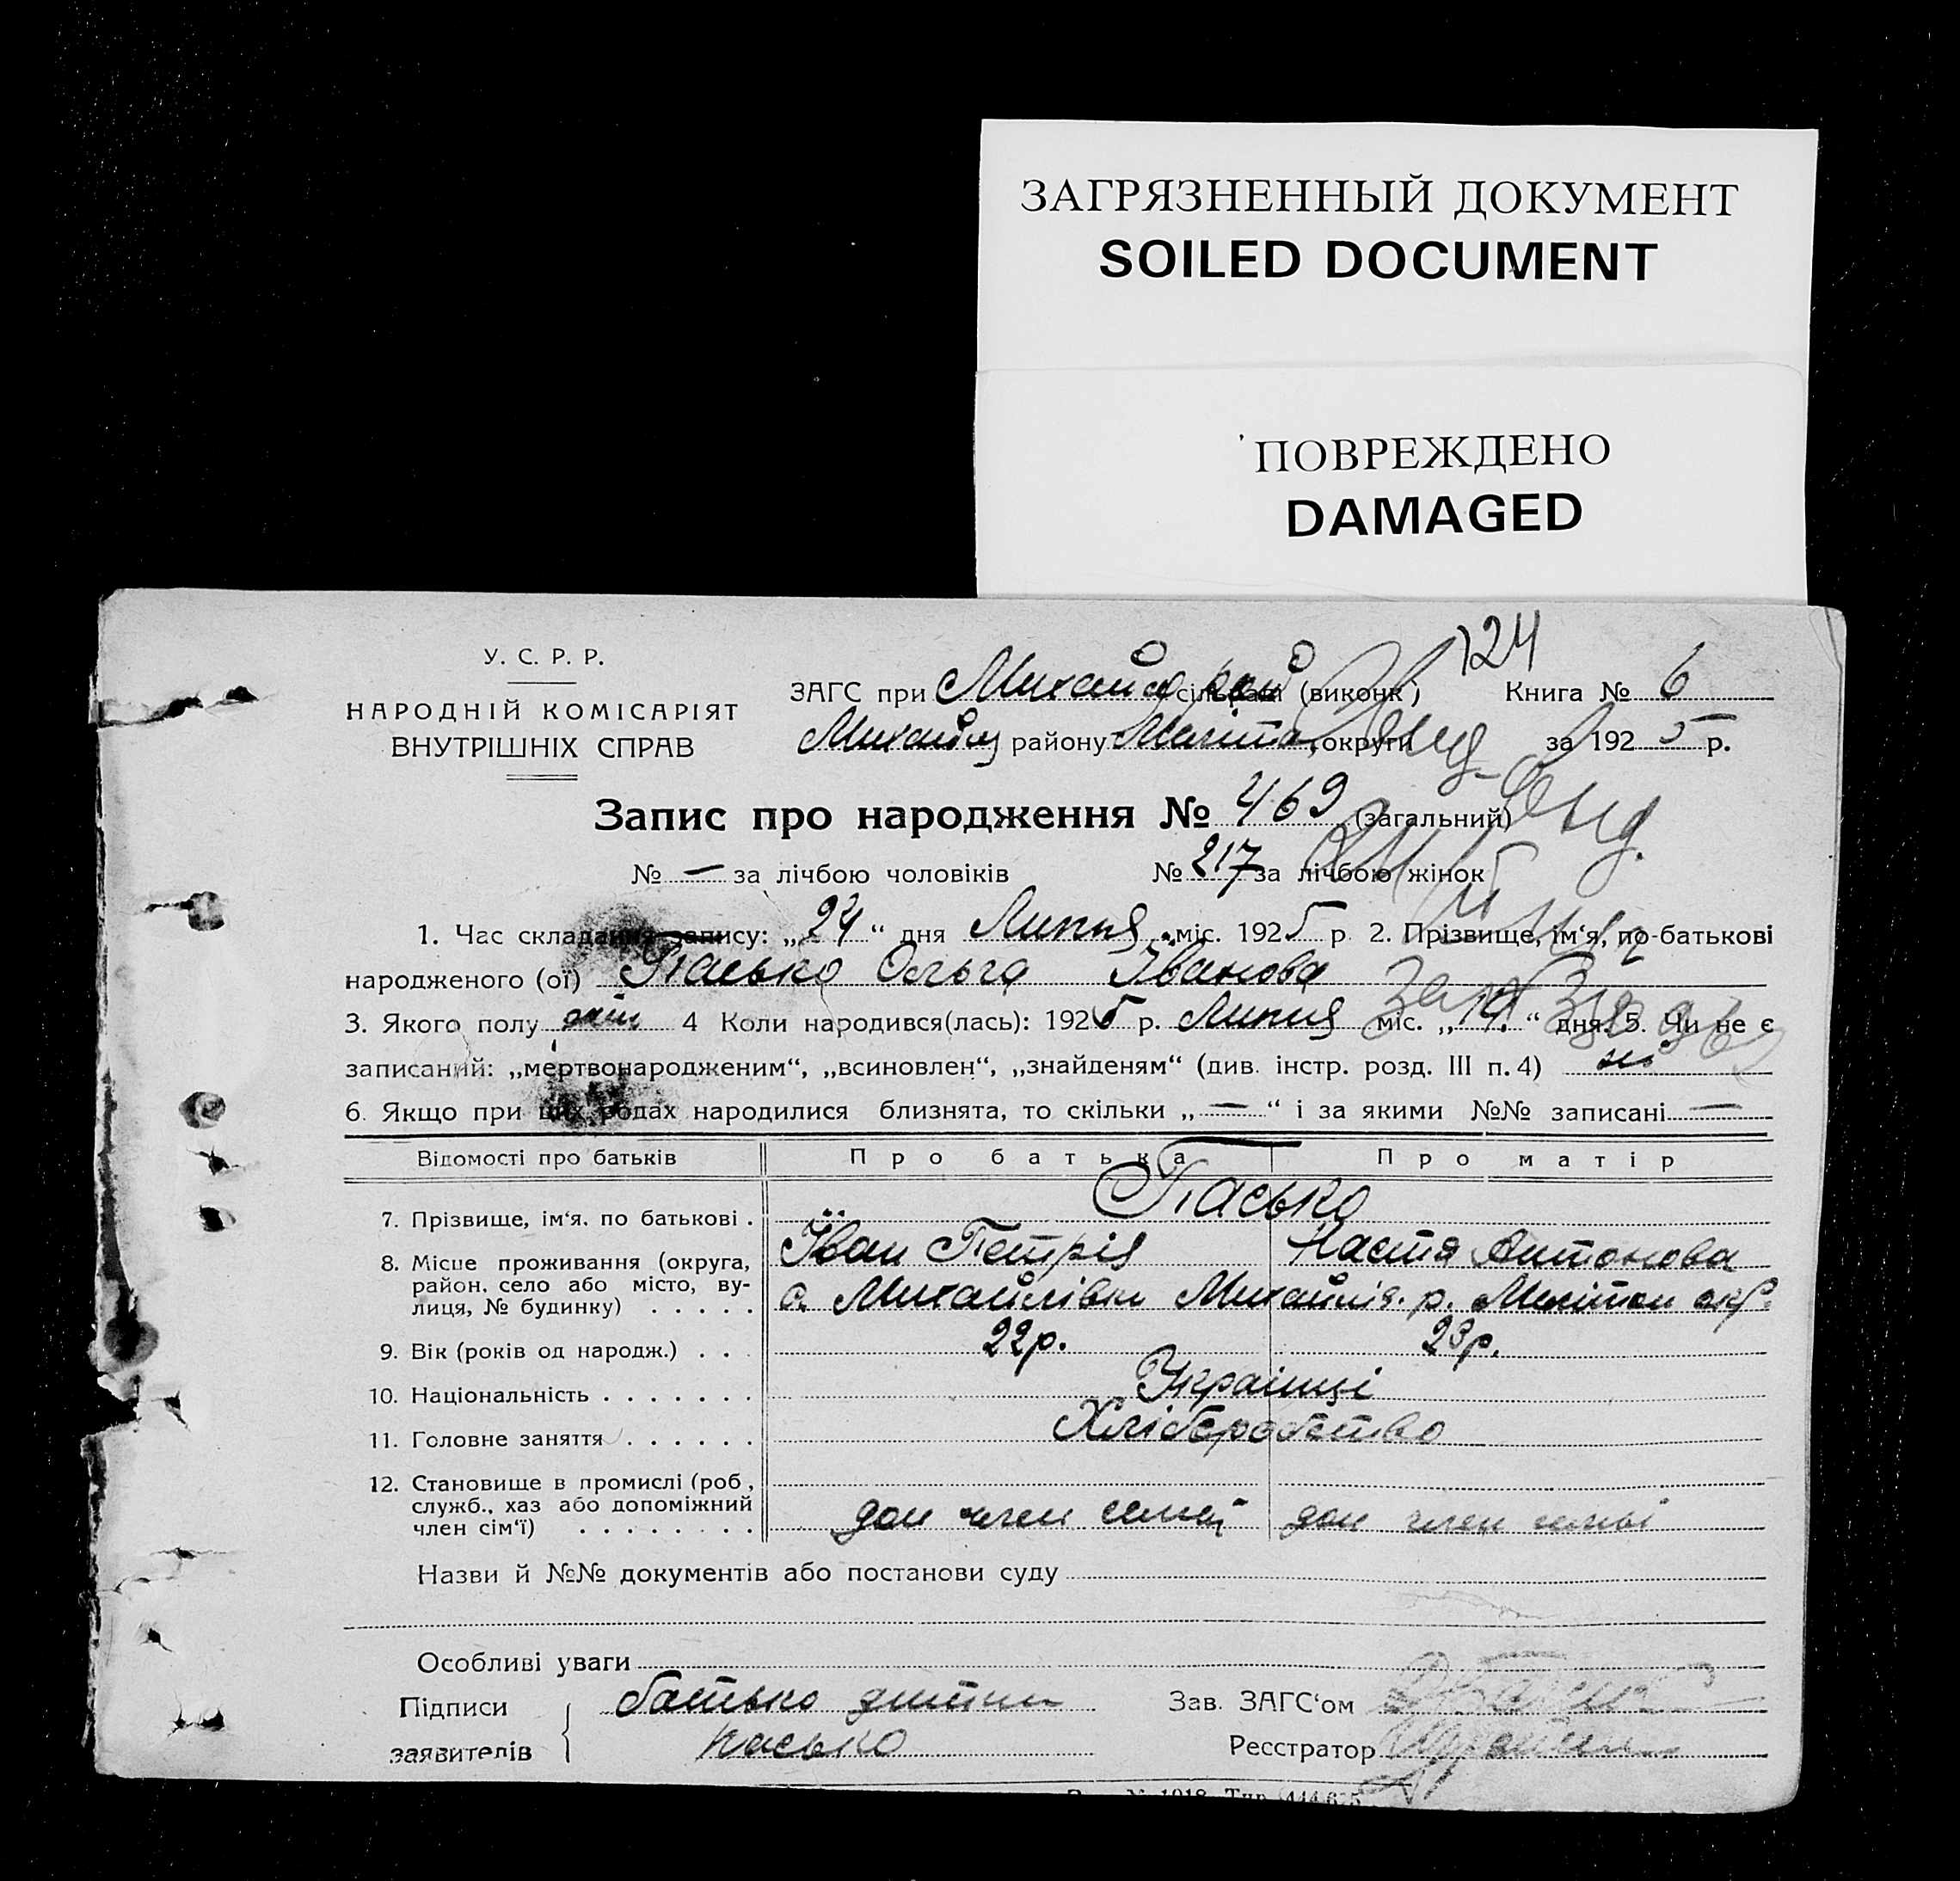 ЗАГРЯЗНЕННЫЙ ДОКУМЕНТ
SOILED DOCUMENT
ПОВРЕЖДЕНО
DAMAGED
124
У. С. Р. Р.
НАРОДНІЙ КОМІСАРІЯТ
ВНУТРІШНІХ СПРАВ
ЗАГС при Михайл рай сільраді (виконк) Книга № 6
Михайл району Меліт округи за 1925 р.
Запис про народження № 469 (загальний)
№ — за лічбою чоловіків № 217 за лічбою жінок
1. Час складання запису: „24“ дня Липня міс. 1925 р 2. Прізвище, ім‘я, по-батькові
народженого (ої) Пасько Ольга Іванова
3. Якого полу жін 4 Коли народився(лась): 1925 р. Липня міс. „19“ дня. 5. Чи не є
записаний: „мертвонародженим“, „всиновлен“, „знайденям“ (див. інстр. розд. III п. 4) ні
6. Якщо при цих родах народилися близнята, то скільки „—“ і за якими №№ записані —
Відомості про батьків Про батька Про матір
7. Прізвище, ім‘я. по батькові . Пасько
Іван Петрів Настя Антонова
8. Місце проживання (округа, район. село або місто, вулиця, № будинку) . . . . . с. Михайлівки Михайлів. р. Мелітоп окр.
9. Вік (років од народж.) . . . 22р. 23р.
10. Національність . . . . . . . Українці
11. Головне заняття . . . . . . Хліборобство
12. Становище в промислі (роб, служб., хаз або допоміжний член сім‘ї) . . . . . . . . доп член семьї доп член семьі
Назви й №№ документів або постанови суду
Особливі уваги
Підписи батько дитини Зав. ЗАГС‘ом
заявителів Пасько Реєстратор